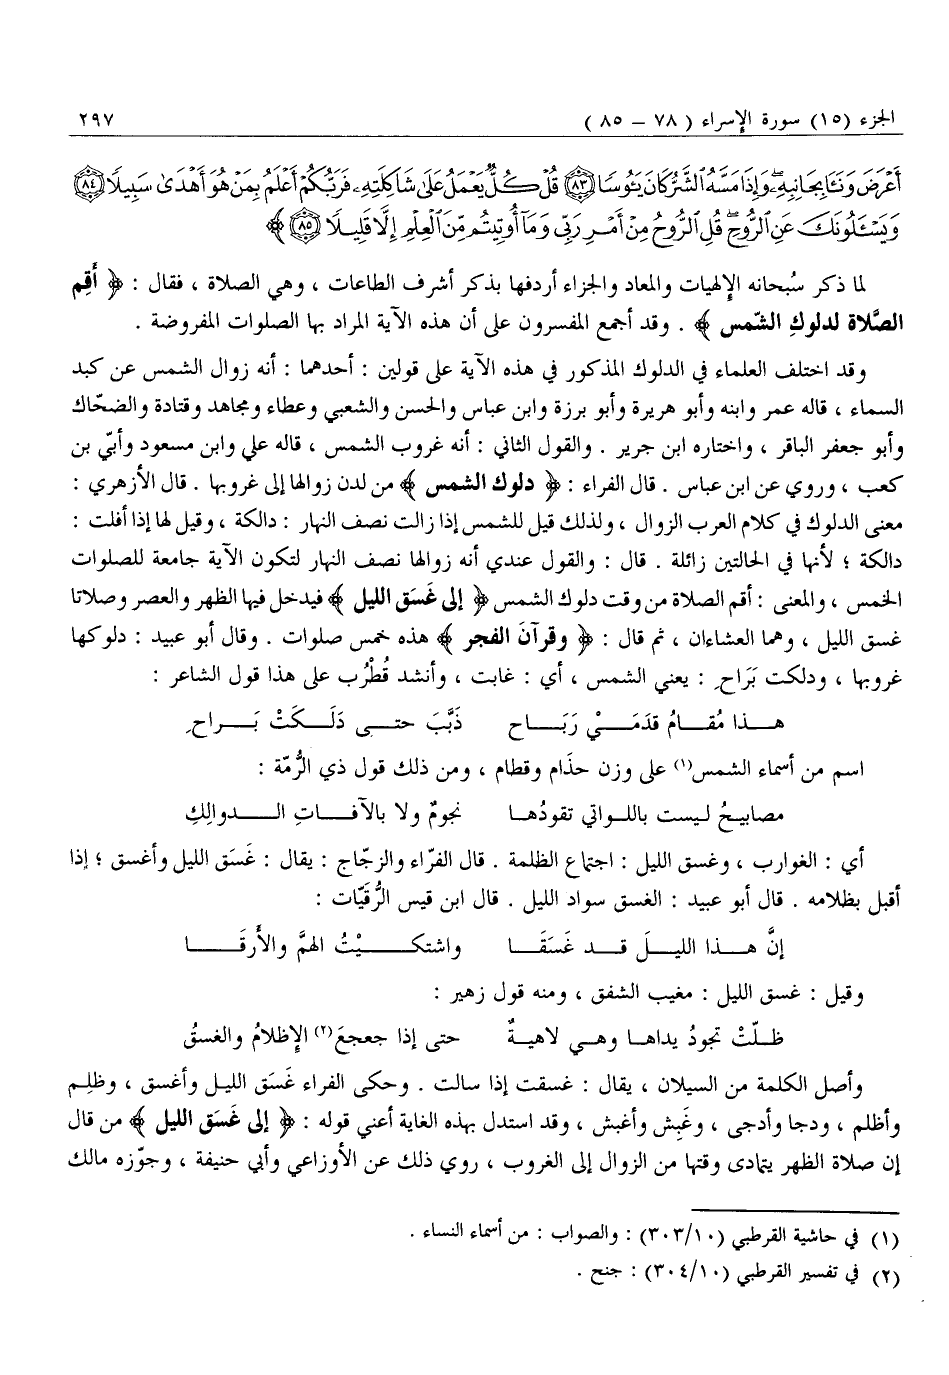 الجزء (١٥) سورة الإسراء ( ٧٨ - ٨٥ ) ٢٩٧
أَعْرَضَ وَنَـَٔا بِجَانِبِهِۦ وَإِذَا مَسَّهُ ٱلشَّرُّ كَانَ يَـُٔوسًا ﴿٨٣﴾ قُلْ كُلٌّ يَعْمَلُ عَلَىٰ شَاكِلَتِهِۦ فَرَبُّكُمْ أَعْلَمُ بِمَنْ هُوَ أَهْدَىٰ سَبِيلًا ﴿٨٤﴾
وَيَسْـَٔلُونَكَ عَنِ ٱلرُّوحِ ۖ قُلِ ٱلرُّوحُ مِنْ أَمْرِ رَبِّى وَمَآ أُوتِيتُم مِّنَ ٱلْعِلْمِ إِلَّا قَلِيلًا ﴿٨٥﴾ ﴾
لما ذكر سُبحانه الإلهيات والمعاد والجزاء أردفها بذكر أشرف الطاعات ، وهي الصلاة ، فقال : ﴿ أَقِم
الصَّلاة لدلوكِ الشّمس ﴾ . وقد أجمع المفسرون على أن هذه الآية المراد بها الصلوات المفروضة .
وقد اختلف العلماء في الدلوك المذكور في هذه الآية على قولين : أحدهما : أنه زوال الشمس عن كبد
السماء ، قاله عمر وابنه وأبو هريرة وأبو برزة وابن عباس والحسن والشعبي وعطاء ومجاهد وقتادة والضحّاك
وأبو جعفر الباقر ، واختاره ابن جرير . والقول الثاني : أنه غروب الشمس ، قاله علي وابن مسعود وأبيّ بن
كعب ، وروي عن ابن عباس . قال الفراء : ﴿ دلوك الشمس ﴾ من لدن زوالها إلى غروبها . قال الأزهري :
معنى الدلوك في كلام العرب الزوال ، ولذلك قيل للشمس إذا زالت نصف النهار : دالكة ، وقيل لها إذا أفلت :
دالكة ؛ لأنها في الحالتين زائلة . قال : والقول عندي أنه زوالها نصف النهار لتكون الآية جامعة للصلوات
الخمس ، والمعنى : أقم الصلاة من وقت دلوك الشمس ﴿ إلى غَسَق الليل ﴾ فيدخل فيها الظهر والعصر وصلاتا
غسق الليل ، وهما العشاءان ، ثم قال : ﴿ وقرآنَ الفجر ﴾ هذه خمس صلوات . وقال أبو عبيد : دلوكها
غروبها ، ودلكت بَرَاحِ : يعني الشمس ، أي : غابت ، وأنشد قُطْرُب على هذا قول الشاعر :
هذا مُقامُ قدَمَيْ رَبَاح ذَبَّبَ حتى دَلَكَتْ بَراحِ
اسم من أسماء الشمس(١) على وزن حذَام وقطام ، ومن ذلك قول ذي الرُّمّة :
مصابيحُ ليست باللواتي تقودُها نجومٌ ولا بالآفاتِ الدوالِكِ
أي : الغوارب ، وغسق الليل : اجتماع الظلمة . قال الفرّاء والزجّاج : يقال : غَسَق الليل وأغسق ؛ إذا
أقبل بظلامه . قال أبو عبيد : الغسق سواد الليل . قال ابن قيس الرُّقيّات :
إنَّ هذا الليلَ قد غَسَقَا واشتكيْتُ الهمَّ والأرَقَا
وقيل : غسق الليل : مغيب الشفق ، ومنه قول زهير :
ظلّتْ تجودُ يداها وهي لاهيةٌ حتى إذا جعجعَ(٢) الإظلامُ والغسقُ
وأصل الكلمة من السيلان ، يقال : غسقت إذا سالت . وحكى الفراء غَسَق الليل وأغسق ، وظلِم
وأظلم ، ودجا وأدجى ، وغَبِش وأغبش ، وقد استدل بهذه الغاية أعني قوله : ﴿ إلى غَسَق الليل ﴾ من قال
إن صلاة الظهر يتمادى وقتها من الزوال إلى الغروب ، روي ذلك عن الأوزاعي وأبي حنيفة ، وجوّزه مالك
(١) في حاشية القرطبي (٣٠٣/١٠) : والصواب : من أسماء النساء .
(٢) في تفسير القرطبي (٣٠٤/١٠) : جنح .